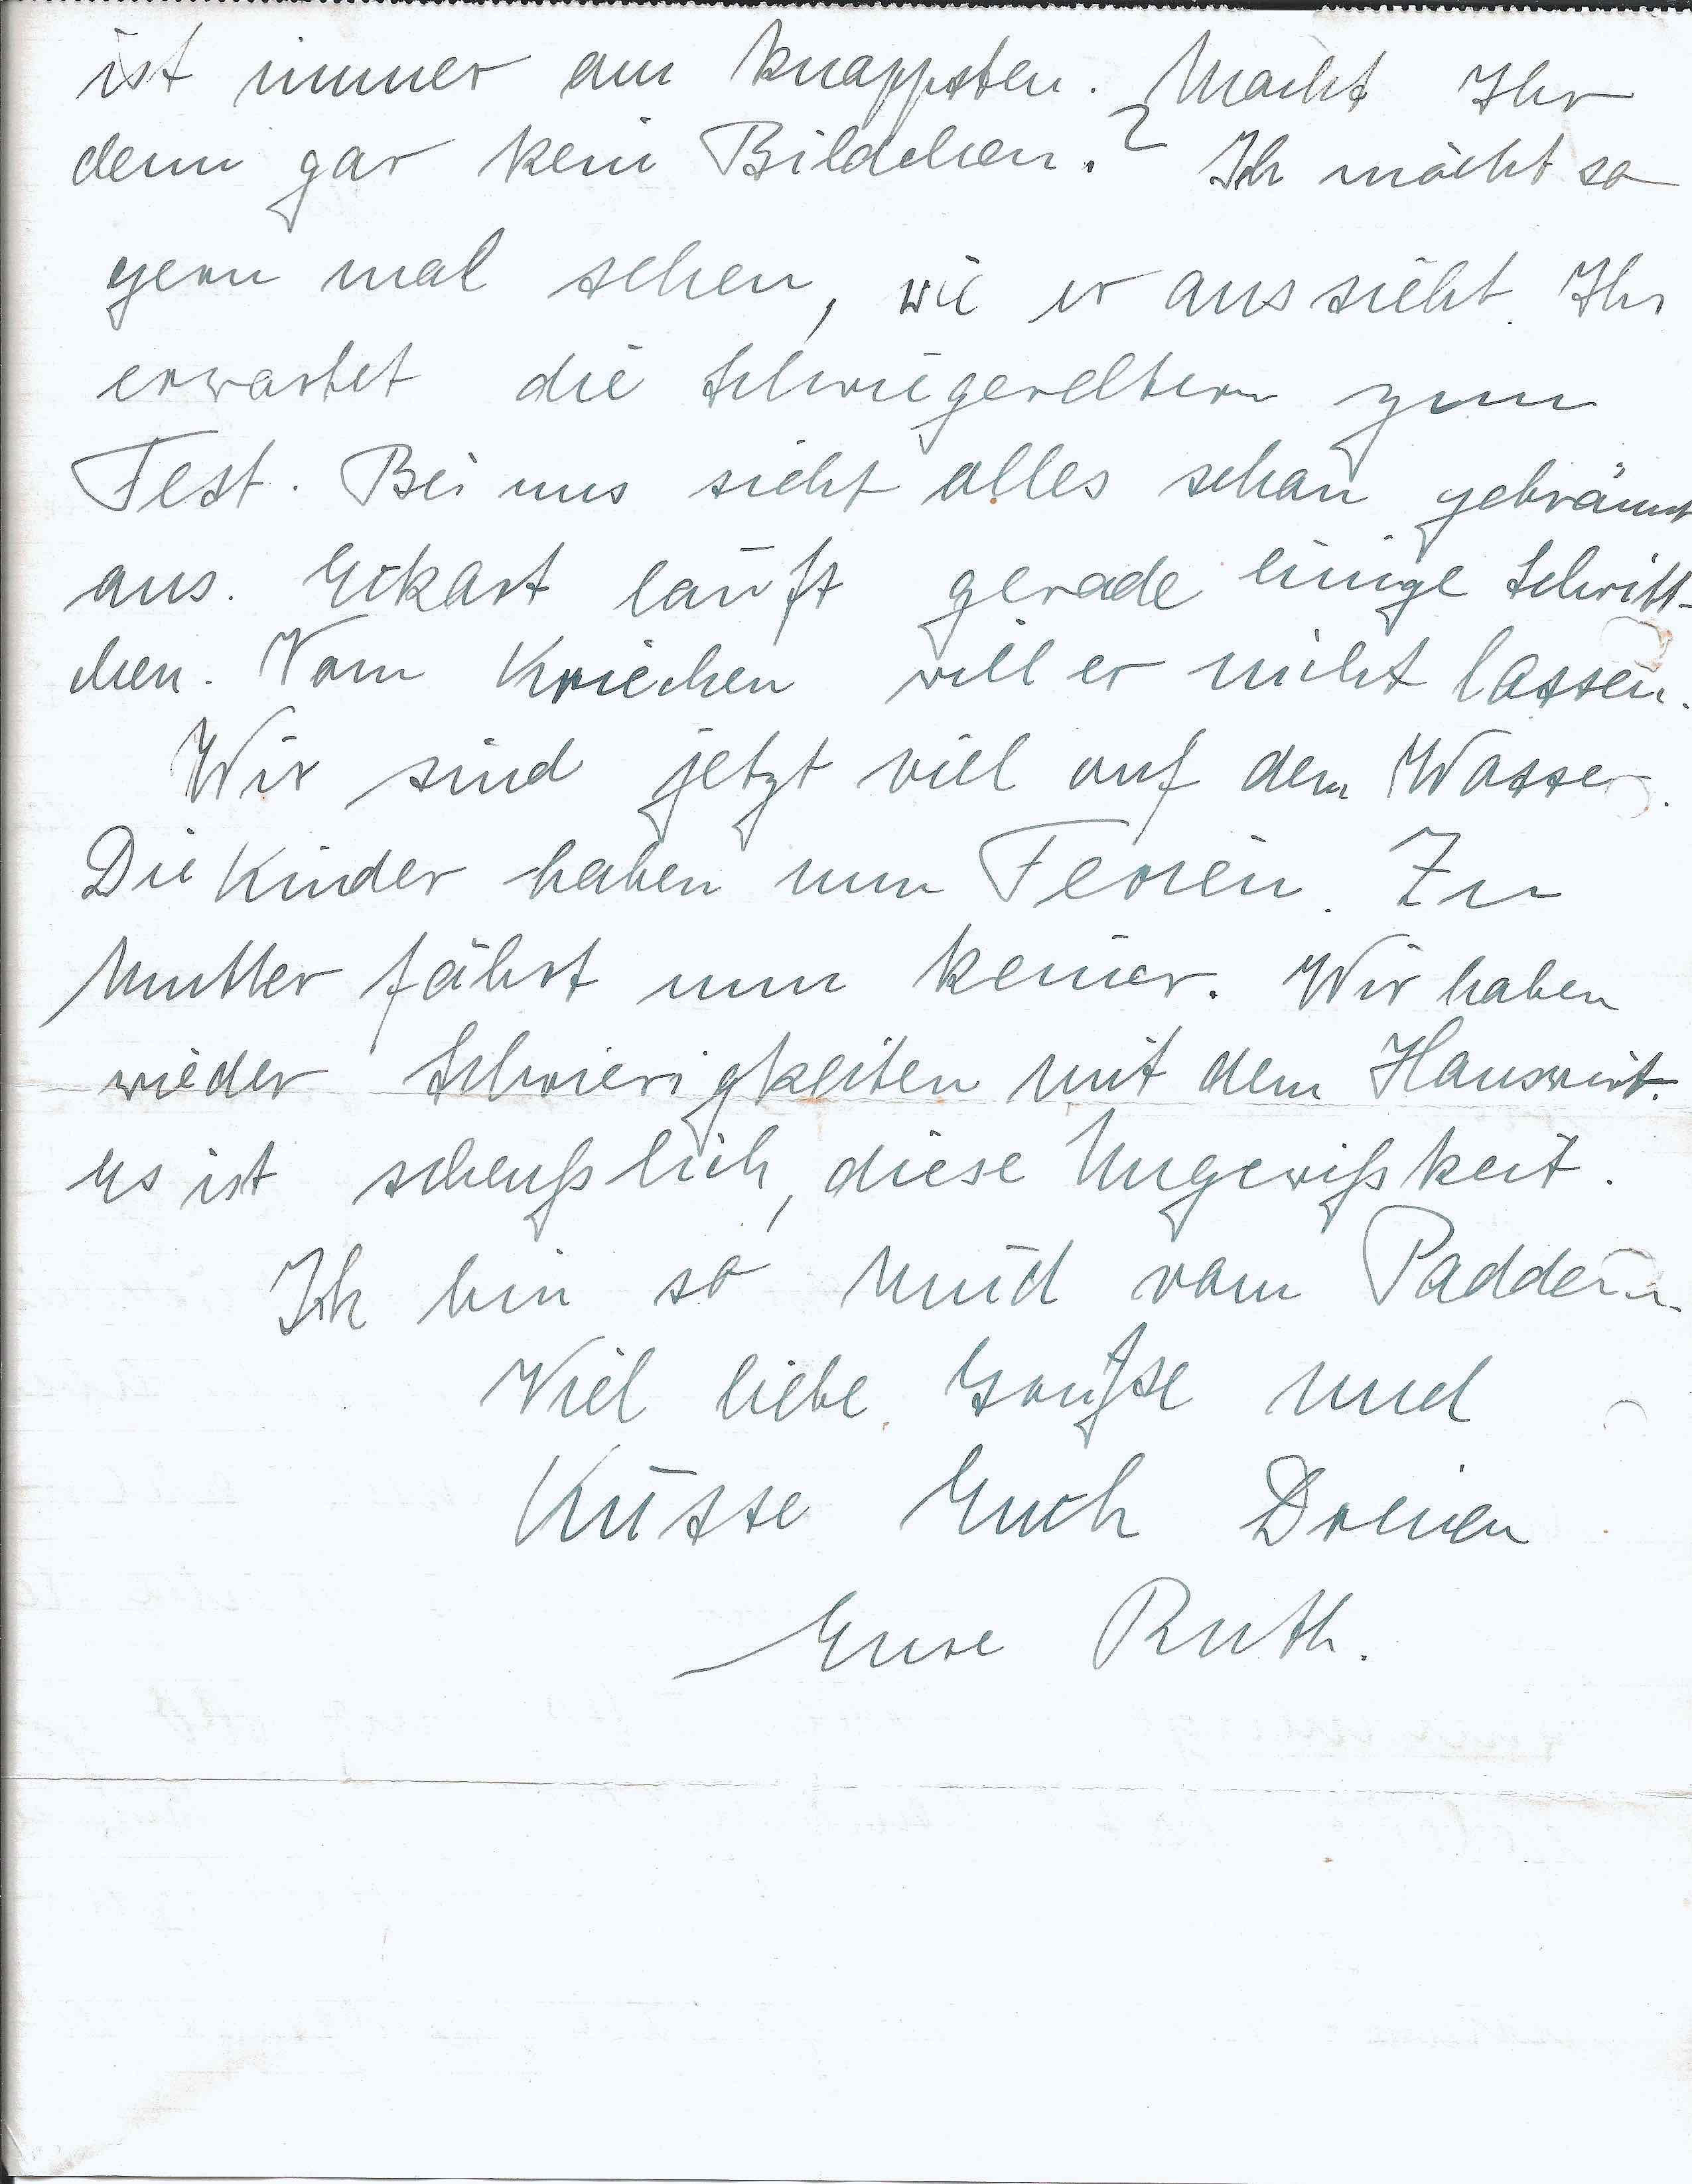 ist immer am knappsten. Macht Ihr
denn gar kein Bildchen? Ich möcht so
gern mal sehen, wie er aussieht. Ihr
erwartet die Schwiegereltern zum
Fest. Bei uns sieht alles schon gebräunt
aus. Eckart läuft gerade einige Schritt-
chen. Vom Kriechen will er nicht lassen.
Wir sind jetzt viel auf dem Wasser.
Die Kinder haben nun Ferien. Zu
Mutter fährt nun keiner. Wir haben
wieder Schwierigkeiten mit dem Hauswirt.
Es ist scheußlich, diese Ungewißkeit.
Ich bin so müd vom Paddeln.
Viel liebe Grüße und
Küsse Euch Dreien
Eure Ruth.